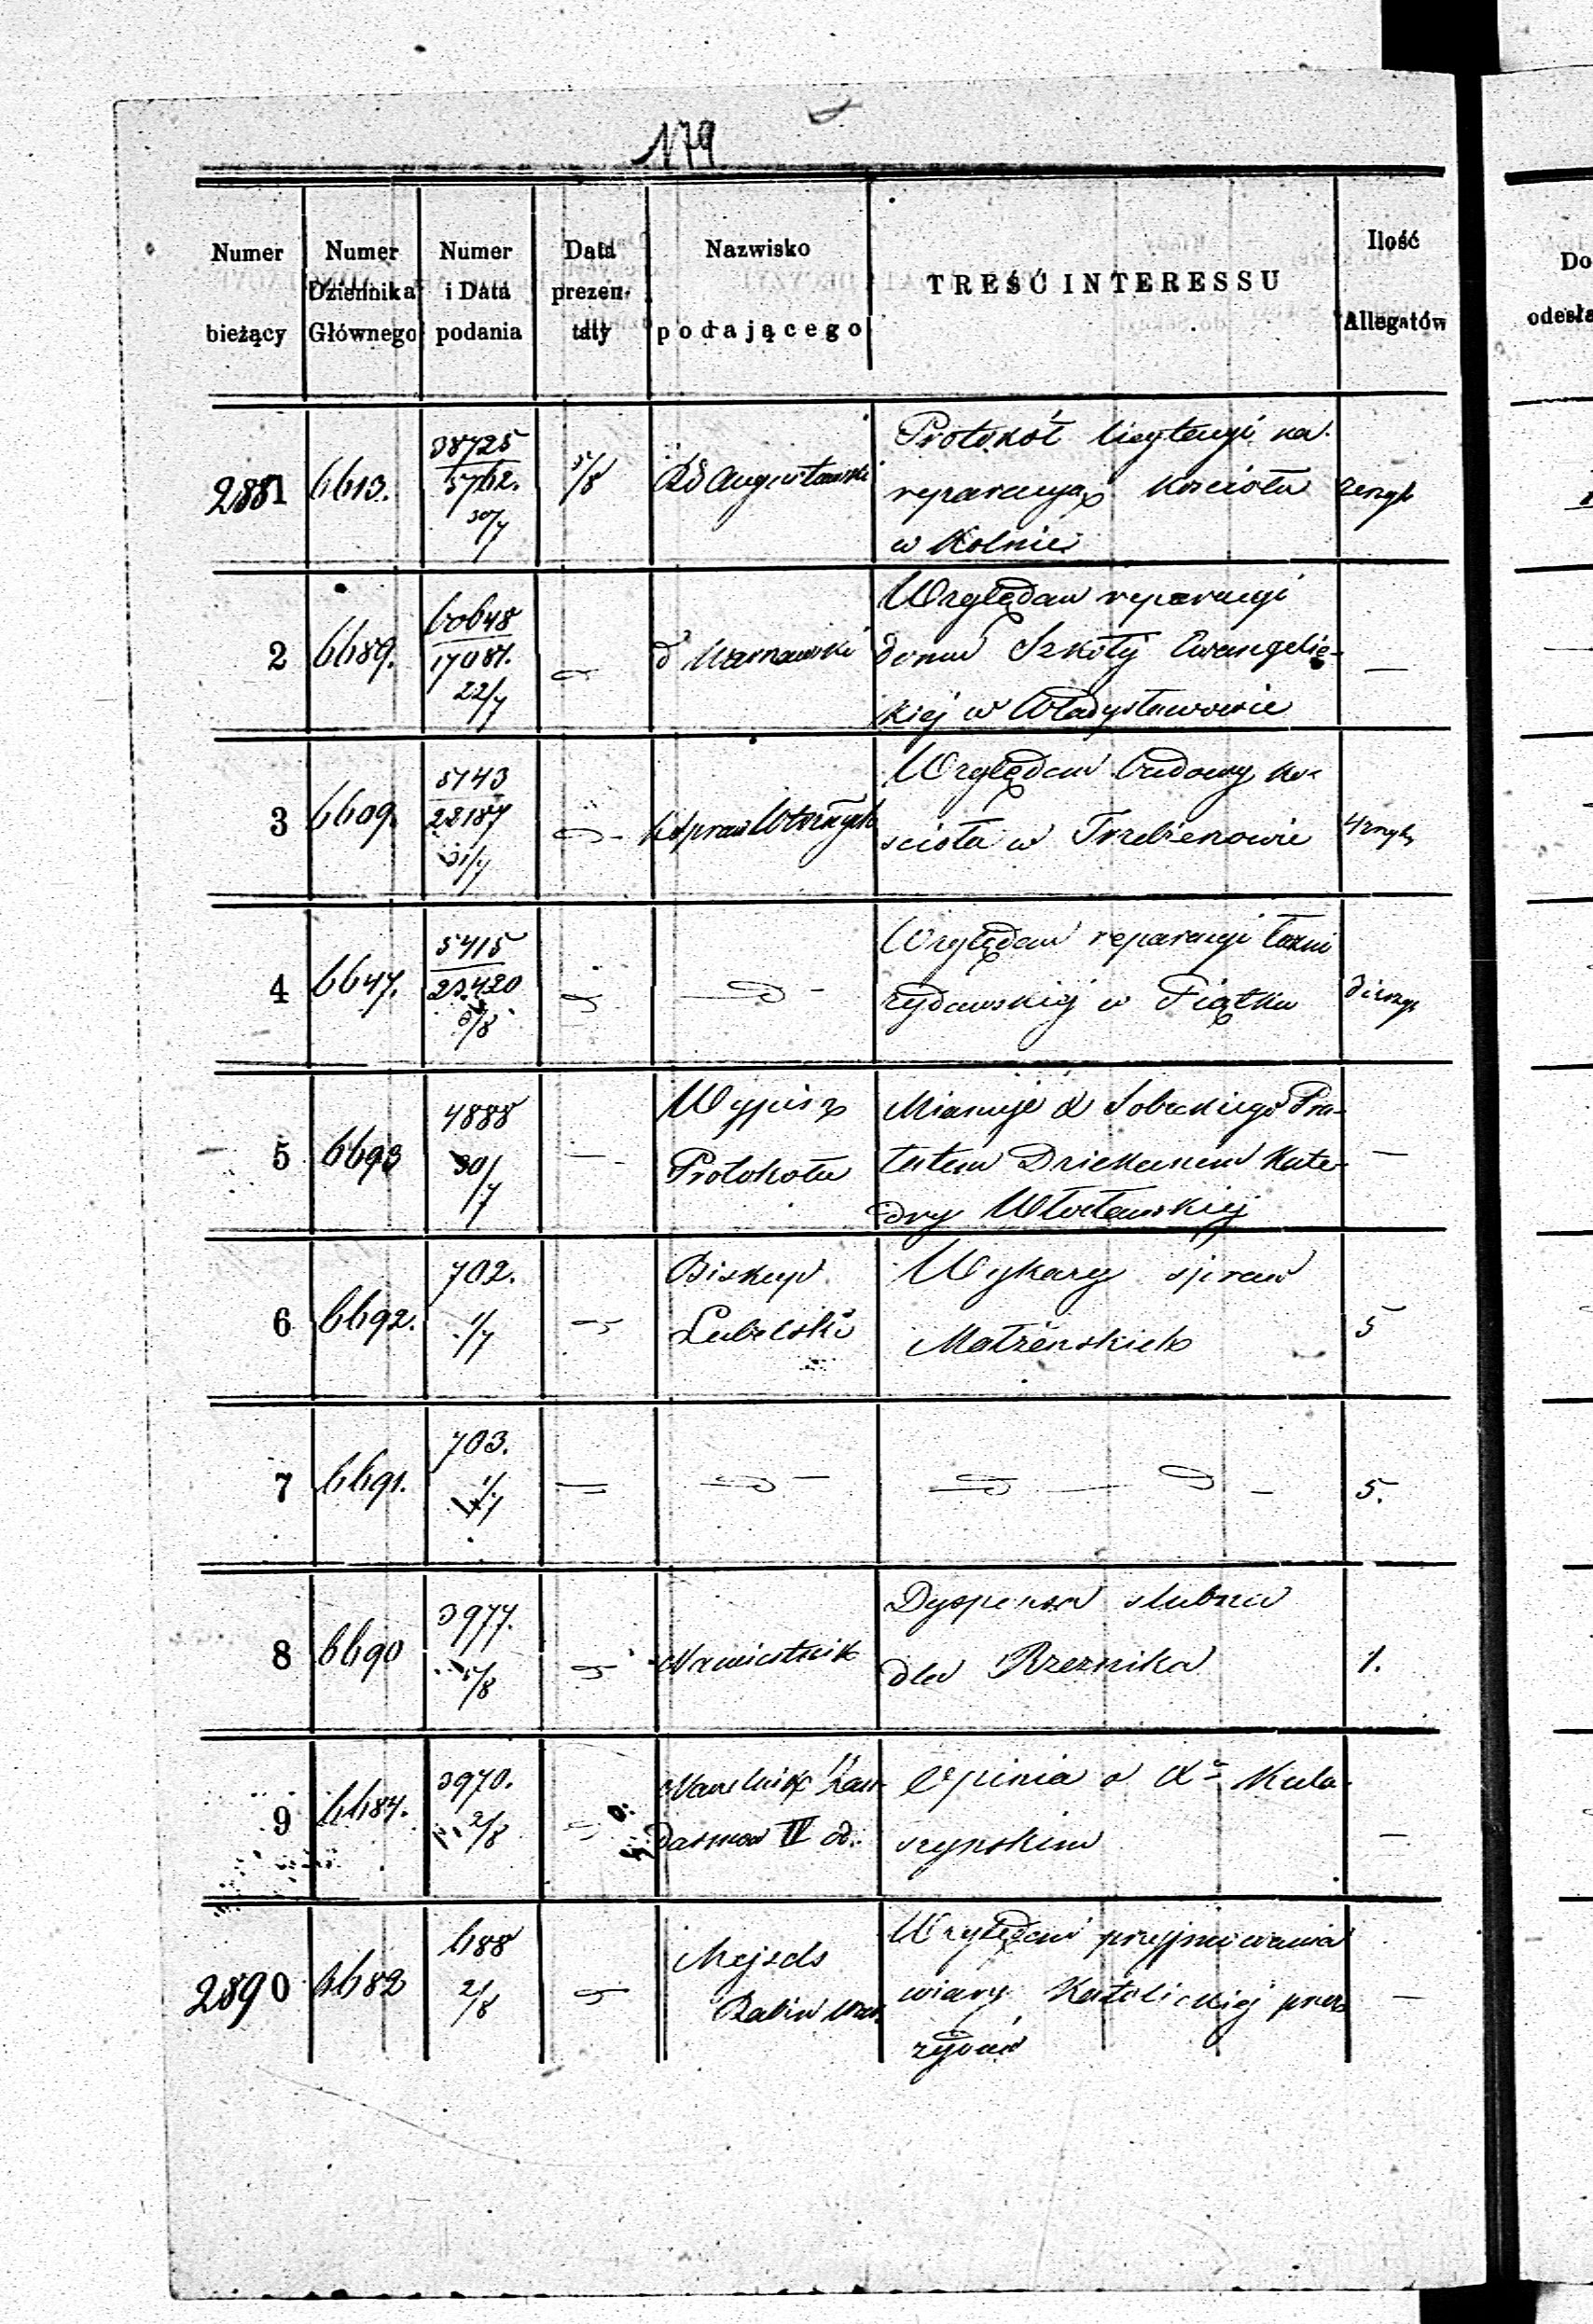 179
Numer bieżący
Numer Dziennika Głównego
Numer i Data podania
Data prezentaty
Nazwisko podającego
TREŚĆ INTERESSU
Ilość Allegatów
Do
odesła
2881 6613. 38725 5762. 30/7 5/8 Rd Augustowski
Protokół licytacyi na
reparacyą Kościoła
w Kolnie
2 6689. 60648 17087. 22/7 d Warszawski
Względem reparacyi
domu Szkoły Ewangelic-
kiej w Władysławowie
—
3 6609. 5743 22187 31/7
Względem budowy Ko-
ścioła w
4 6647. 5415 23420 3/8
Względem reparacyi łaźni
żydowskiej w Piątku
5 6693 4888 30/7 —
Wypis z
Protokołu
Mianuje X Sobeckiego Pra-
łatem Dziekanem Kate-
dry Włocławskiej
—
6 6692. 702. 1/7
Biskup
Lubelski
Wykazy spraw
Małżeńskich
5
7 6691. 703. 1/7
5.
8 6690 3977. 5/8
Namiestnik
Dyspensa ślubna
dla Rzeznika
1.
9 6687. 3970. 2/8
Naczelnik Żan-
darmów IV od.
Opinia o Xu Kula-
szynskim
—
2890 6682 688 2/8
Mejzels
Rabin War.
Względem przyjmowania
wiary Katolickiej przez
żydów
—